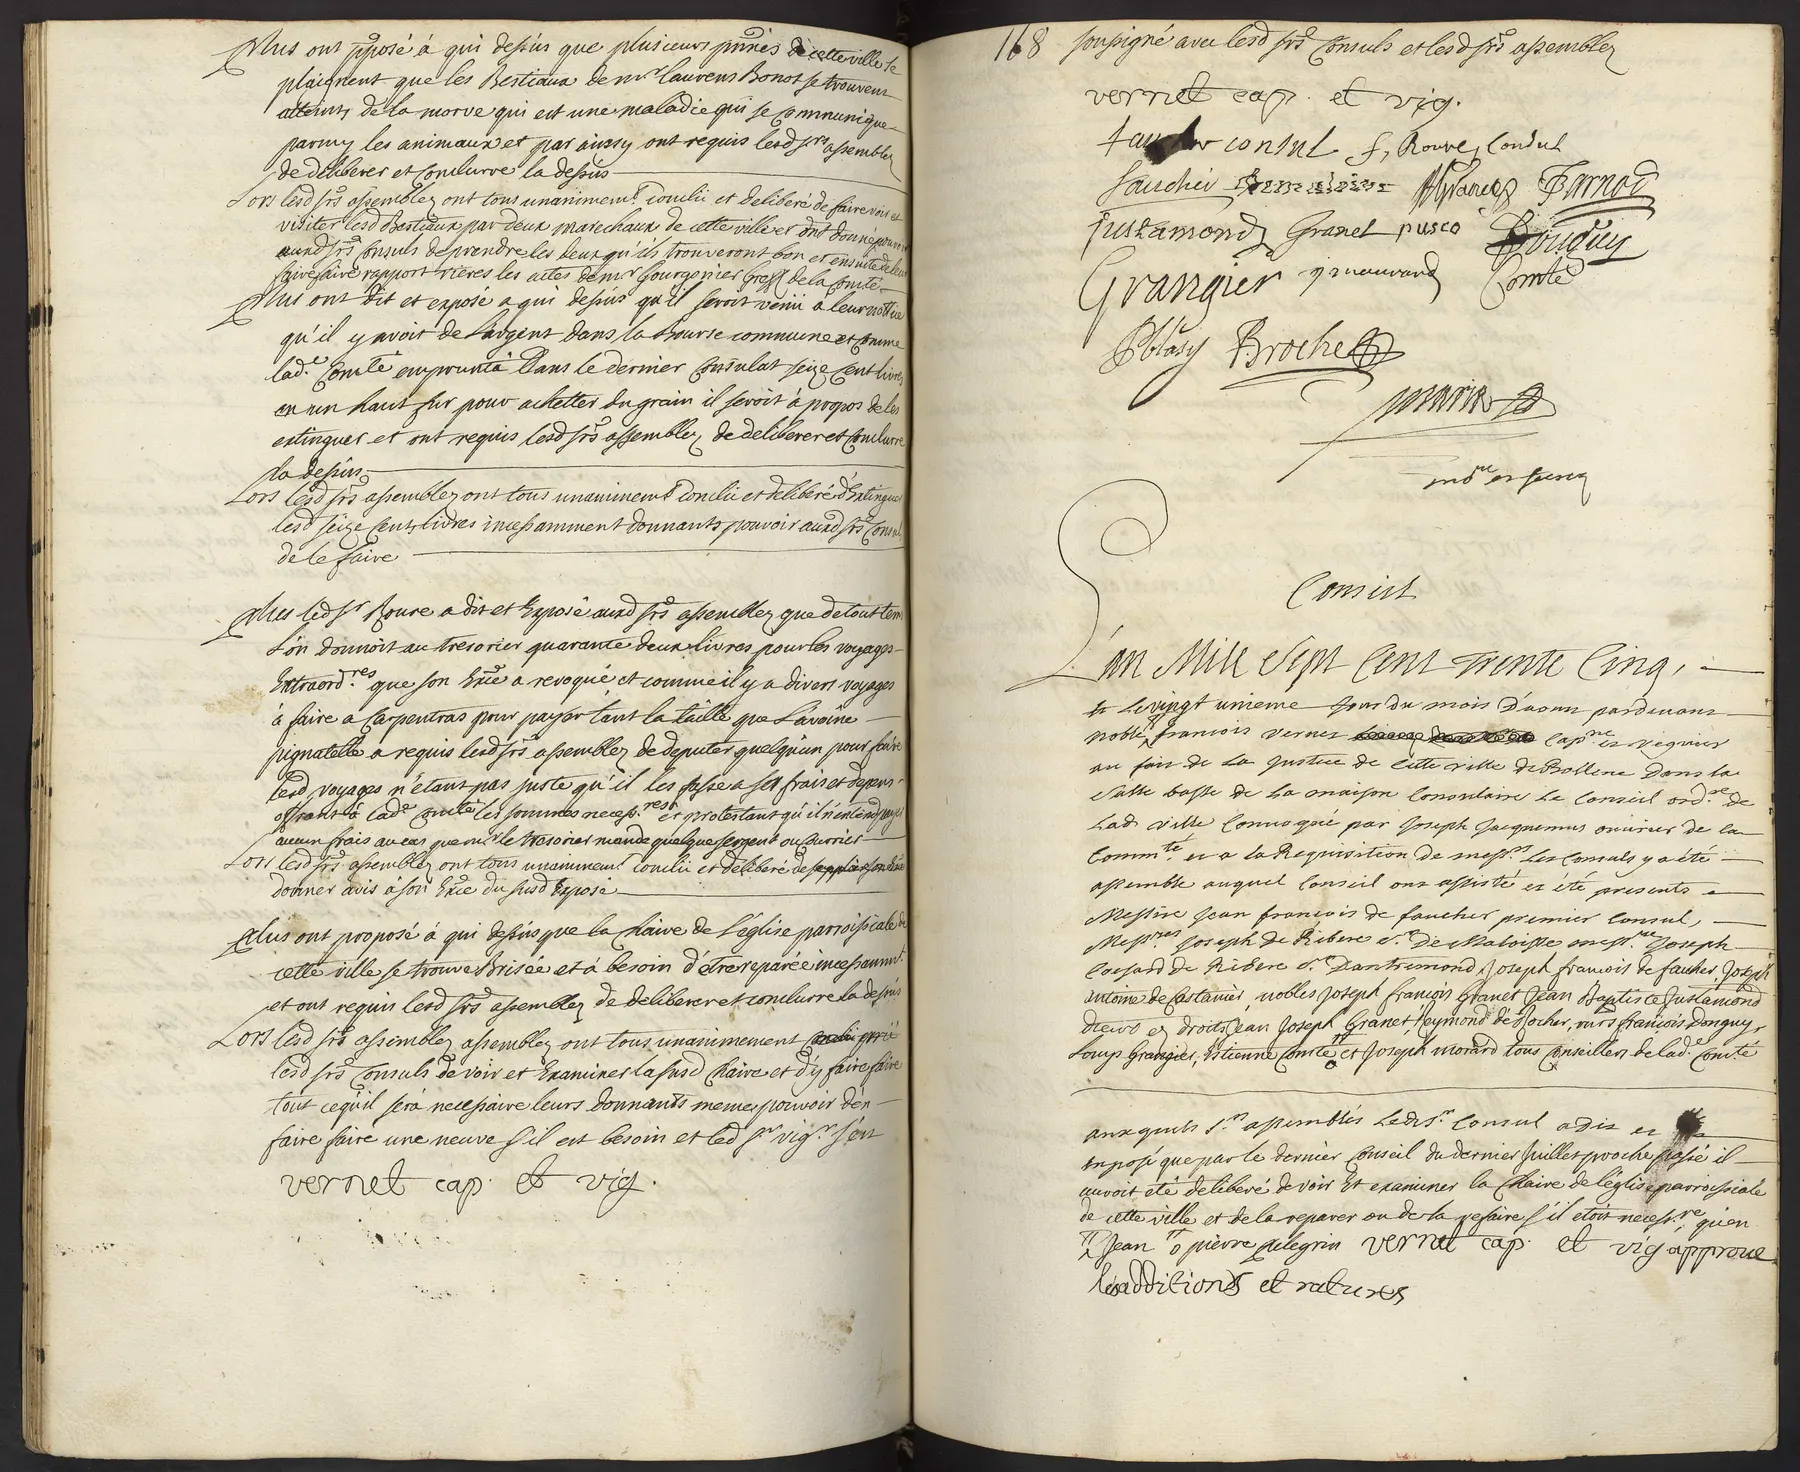 Plus ont pposé à qui dessus que plusieurs pnñes de cette ville se
plaignent que les Bestiaux de mr laurens Bonot se trouvent
atteints de la morve qui est une maladie qui se Communique
parmy les animaux et par ainsy ont requis lesd srs assemblez
de deliberer et Conclurre la dessus
Lors lesd srs assemblez ont tous unanimemt conclu et deliberé de faire voir et
visiter lesd Bestiaux par deux marechaux de cette ville et ont donné pouvoir
auxd srs Consuls de prendre les deux qu'ils trouveront bon et ensuite de leur
faire faire rapport rieres les actes de mr Gourgonier Greff de la Comté
Plus ont dit et exposé a qui dessus qu'il seroit venu a leur notice
qu'il y avoit de l'argent dans la Bourse commune et Comme
lad.e Comté emprunta Dans le dernier Consulat seize Cent livres
en un haut sur pour achetter du grain il seroit à propos de les
extinguer et ont requis lesd srs assemblez de deliberer et Conclurre
la dessus
Lors lesd srs assemblez ont tous unanimemt Conclu et deliberé d'Extinguer
lesd seize Cents livres incessamment donnants pouvoir auxd srs Consuls
de le faire
Plus led sr Roure a dit et Exposé auxd srs assemblez que de tout tems
l'on donnoit au tresorier quarante deux livres pour les voyages
Extraord.res que son Exce a revoqué et comme il y a divers voyages
à faire a Carpentras pour payer tant la taille que l'avoine
pignatelle a requis lesd srs assemblez de deputer quelqu'un pour faire
lesd voyages n'étant pas juste qu'il les fasse a ses frais et depens
offrant à lad.e Comté les sommes necess.res et protestant qu'il n'entend payer
aucun frais au cas que mr le tresorier mande quelque sergent ou Courrier
Lors lesd srs assemblez ont tous unanimemt Conclu et deliberé de supplier son Exce
donner avis à son Exce du susd Exposé
Plus ont proposé à qui dessus que la Chaire de l'église parroissiale de
cette ville se trouve Brisée et à besoin d'etre reparée incessammt
et ont requis lesd srs assemblez de deliberer et conclurre la dessus
Lors lesd srs assemblez assemblez ont tous unanimement prié
lesd srs Consuls de voir et Examiner la susd Chaire et d'y faire faire
tout cequ'il sera necessaire leurs donnants memes pouvoir d'en
faire faire une neuve s'il est besoin et led sr vigr s'est
vernet cap. et vig.
168 soussigné avec lesd srs Consuls et lesd srs assemblez
vernet cap. et vig.
faucher consul f, Roure, Consul
faucher Granet Farnod
justamond Granet pusco Donguy
Grangier y mauvard Comte
Blasy Broche
marin
Conseil
L'an Mile Sept Cent trente Cinq,
et le vingt unieme Jour du mois d'aoust pardevant
noble francois vernet capne et viguier
au fait de la Justice de cette ville de Bollene dans la
salle basse de la maison Consulaire le Conseil ord.re de
lad ville Convoqué par Joseph Jacquemus ouvrier de la
Commté. et a la Requisition de messrs les Consuls y a été
assemblé auquel Conseil ont assisté et été presents
Messire Jean francois de faucher premier Consul,
Messres Joseph de Ribere sr De Maloisse messre Joseph
Coesard de Ribere sr D'antremond Joseph francois de faucher Joseph
Antoine de Castanier, nobles Joseph francois Granet Jean Baptiste Justamond
Droits ez droits Jean Joseph Granet, Reymond de Rocher, mrs francois Donguy,
Louys Grangier, Estienne Comte et Joseph morard tous Conseillers de lad.e Comté
auxquels srs assemblés Ledsr. Consul a dit et
exposé que par le dernier Conseil du dernier Juillet proche passé il
auroit été deliberé de voir Et examiner la Chaire de l'église parroissiale
de cette ville et de la reparer ou de la refaire s'il etoit necess.re qu'en
Jean pierre pelegrin vernet cap. et vig approuve
les additions et ratures